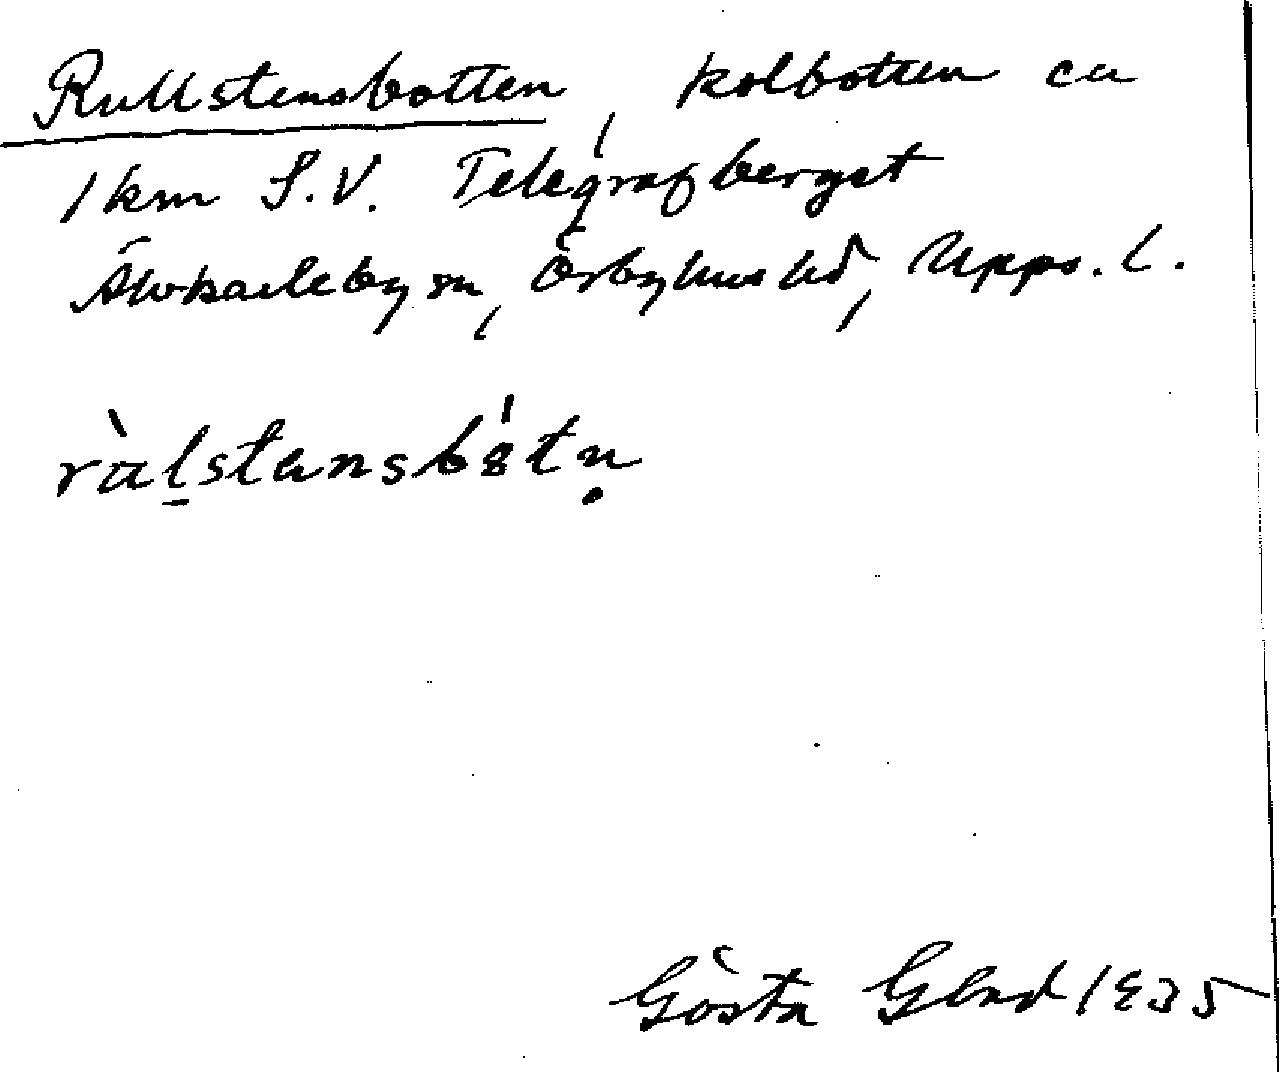 Rullstensbotten, kolbotten ca
1 km S.V. Telegrafberget
Älvkarleby sn, Örbyhus hd, Upps. l.
ràl̠stensbótṇ
Gösta Glad 1935